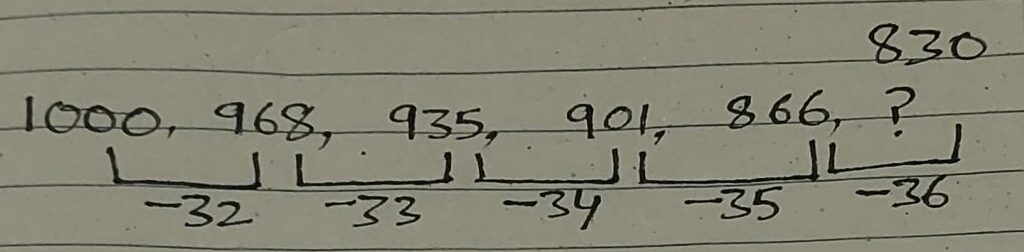 830
1000, 968, 935, 901, 866, ?
-32 -33 -34 -35 -36